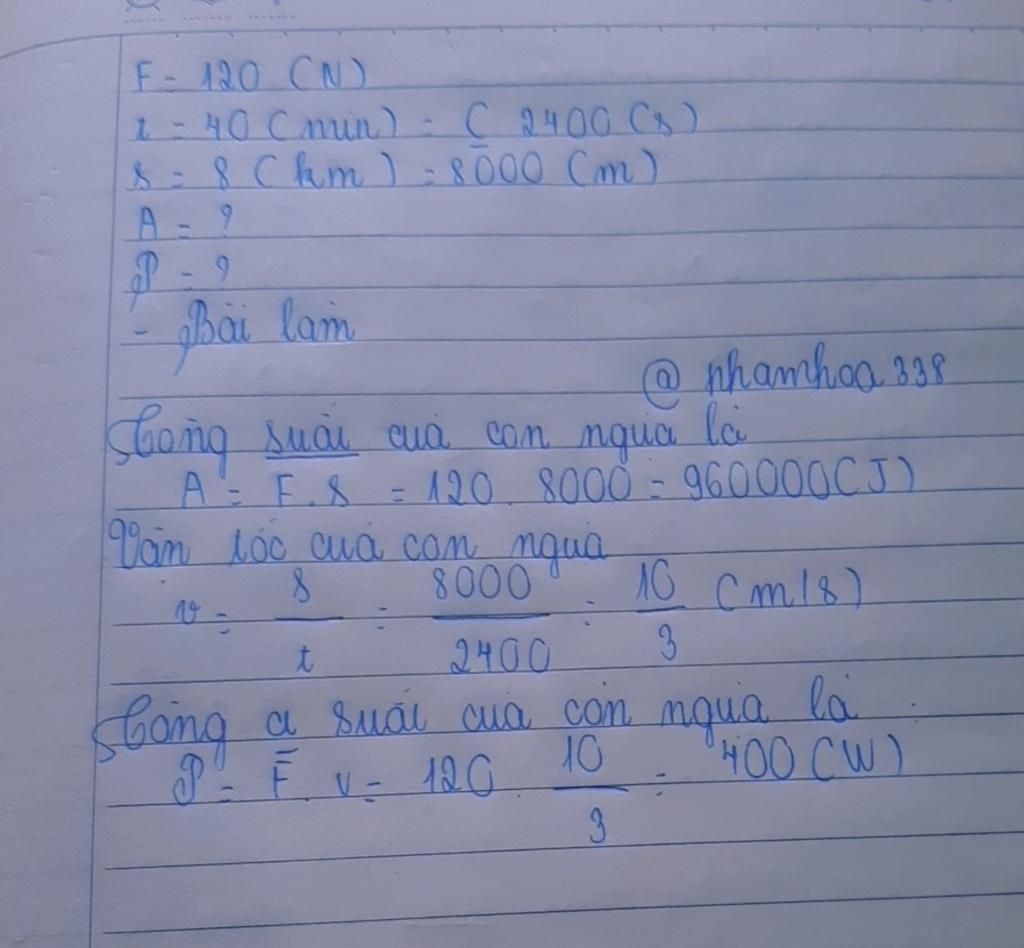 F = 120 (N)
t = 40 (min) = ( 2400 (s)
s = 8 (km) = 8000 (m)
A = ?
P = ?
- Bài làm
@ phamhoa338
Công suất của con ngựa là
A = F.s = 120. 8000 = 960000(J)
Vận tốc của con ngựa
v = s/t = 8000/2400 = 10/3 (m/s)
Công a suất của con ngựa là
P = F. v = 120. 10/3 = 400 (W)